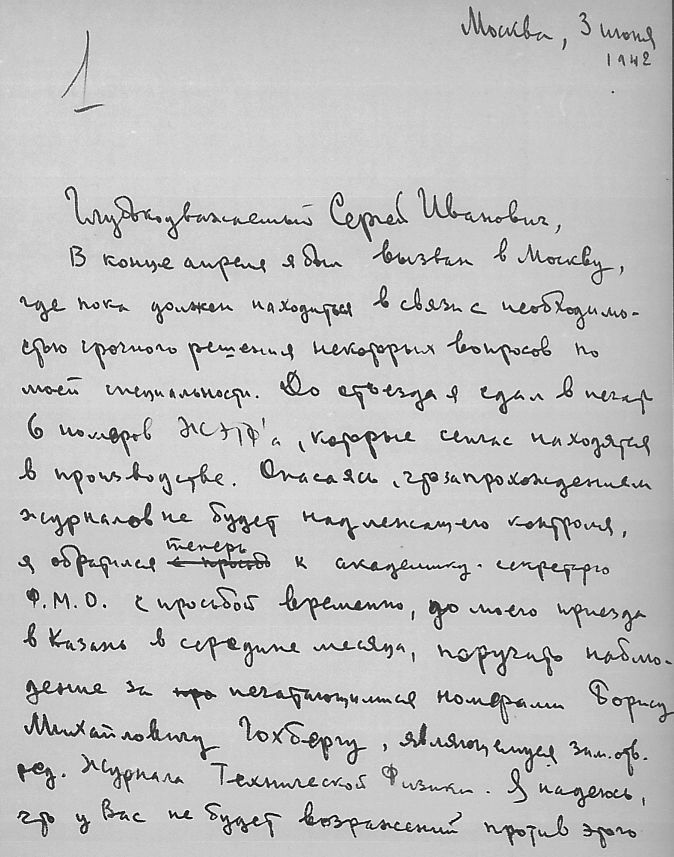 Москва, 3 июня
1942
1
Глубокоуважаемый Сергей Иванович,
В конце апреля я был вызван в Москву,
где пока должен находиться в связи с необходимо-
стью срочного решения некоторых вопросов по
моей специальности. До отъезда я сдал в печать
6 номеров ЖЭТФ'а, которые сейчас находятся
в производстве. Опасаясь, что за прохождением
журналов не будет надлежащего контроля,
теперь
я обратился с просьбой к академику-секретарю
Ф.М.О. с просьбой временно, до моего приезда
в Казань в середине месяца, поручить наблю-
дение за про печатающимися номерами Борису
Михайловичу Гохбергу, являющемуся зам. отв.
ред. Журнала Технической Физики. Я надеюсь,
что у Вас не будет возражений против этого